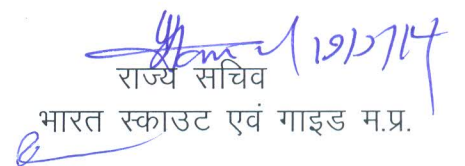 19/2/14
राज्य सचिव
भारत स्काउट एवं गाइड म.प्र.